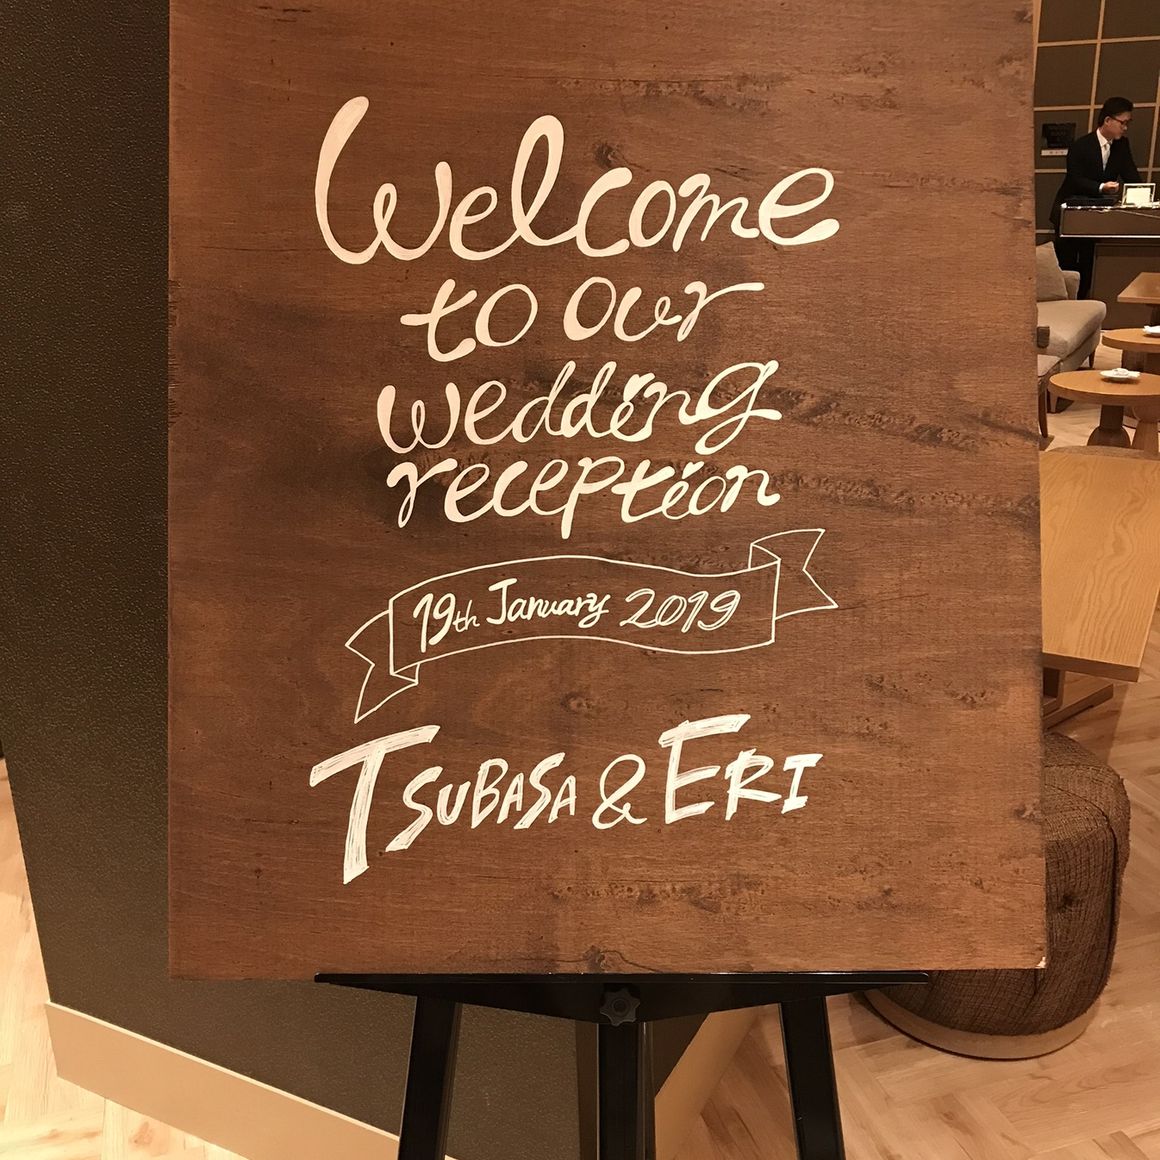 Welcome
to our
wedding
reception
19th January 2019
TSUBASA & ERI